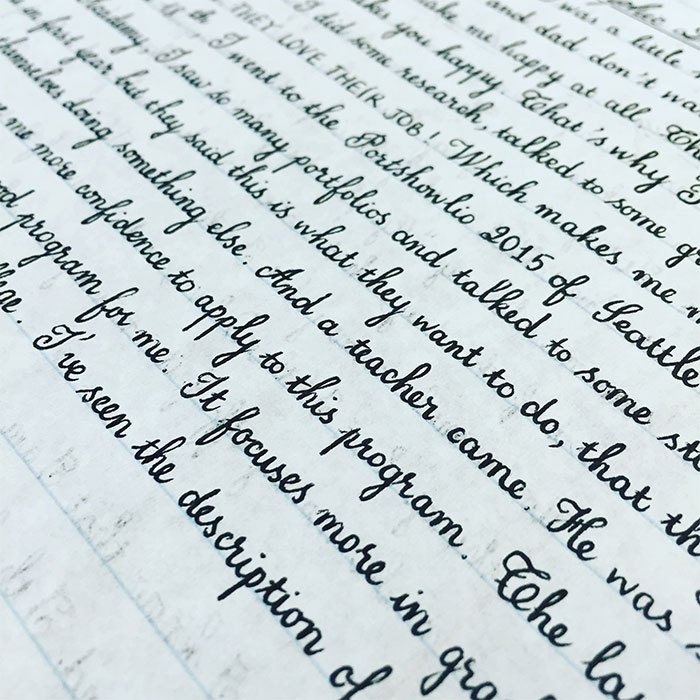 was a little
and dad don't
me happy at all. Th
you happy. That's why I
I did some research, talked to some
THEY LOVE THEIR JOB! Which makes me
I went to the Portshowlio 2015 of Seattle
I saw so many portfolios and talked to some
in first year but they said this is what they want to do, that th
themselves doing something else. And a teacher came. He was
me more confidence to apply to this program. The la
od program for me. It focuses more in gra
I've seen the description of